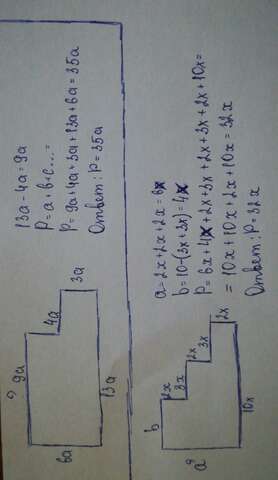 9a
4a
3a
6a
13a
13a - 4a = 9a
P = a + b + c ... =
P = 9a + 4a + 3a + 13a + 6a = 35a
Ответ: P = 35a
b
2x
3x
2x
3x
2x
a
10x
a = 2x + 2x + 2x = 6x
b = 10 - (3x + 3x) = 4x
P = 6x + 4x + 2x + 3x + 2x + 3x + 2x + 10x =
= 10x + 10x + 2x + 10x = 32x
Ответ: P = 32x